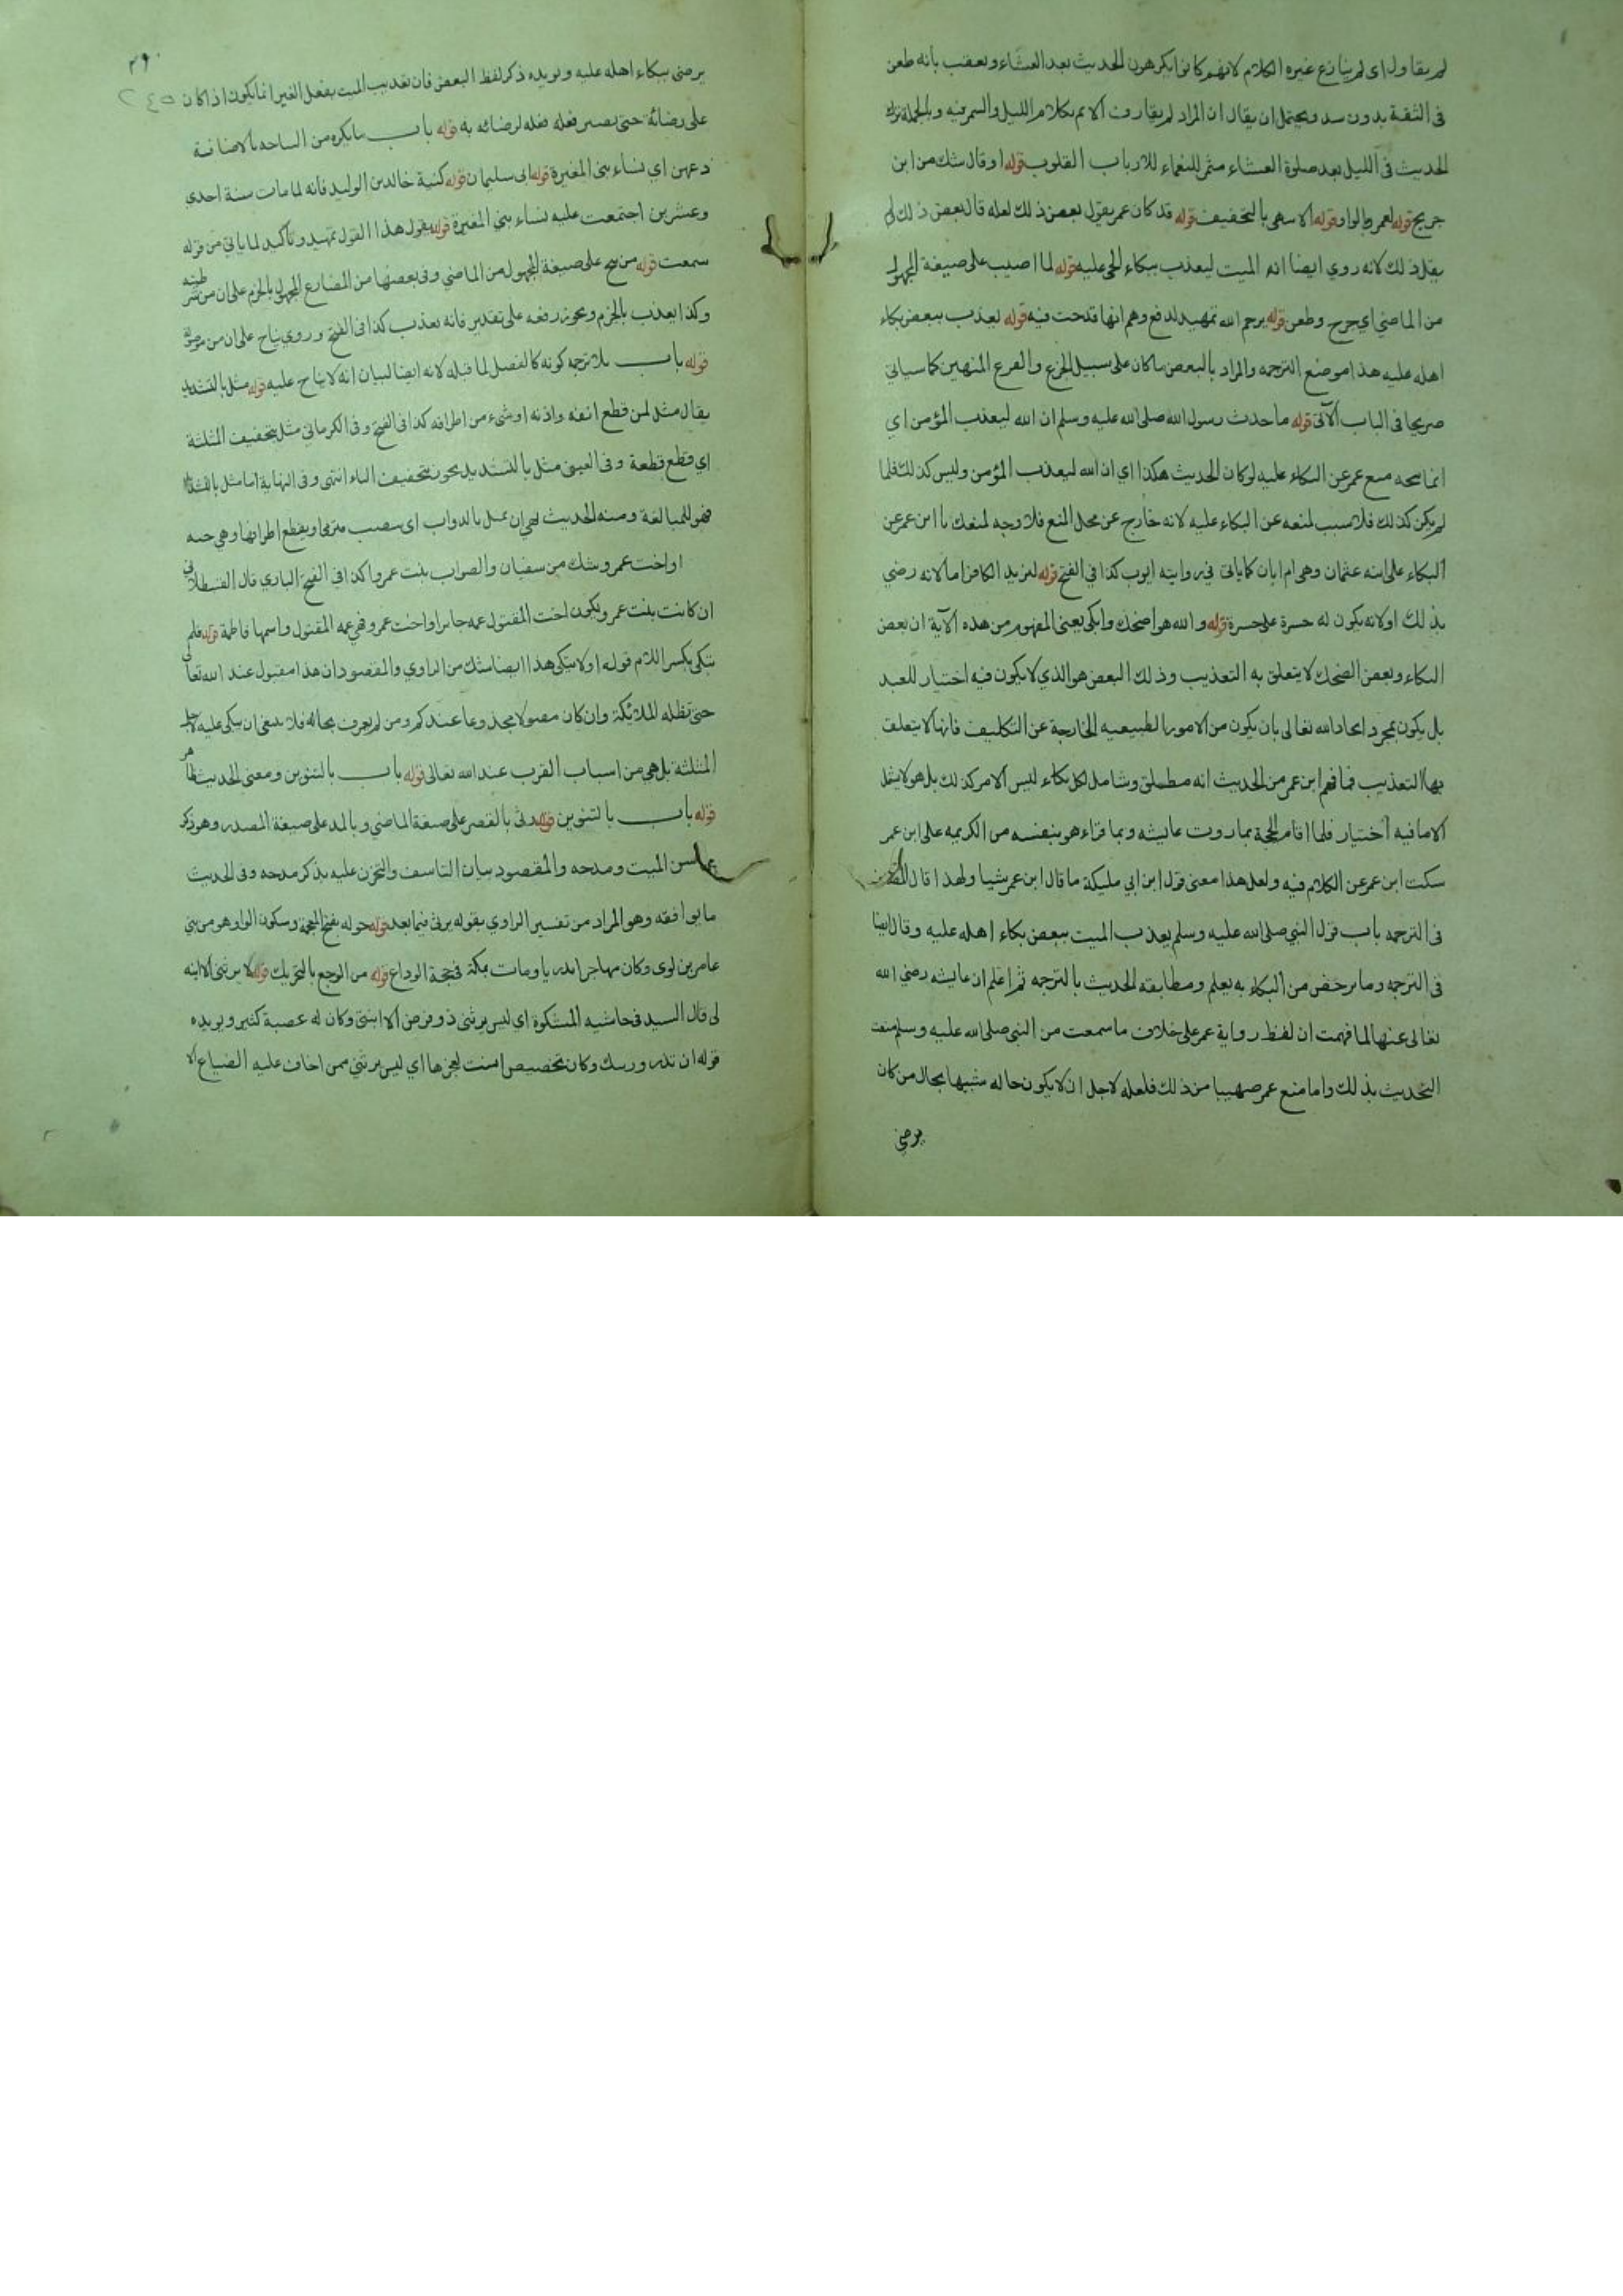 لم يقاول اى لم ينازع غيره الكلام لانهم كانوا يكرهون الحديث بعد العشاء وتعقب بانه طعن
فى الثقة بدون سند ويحتمل ان يقال ان المراد لم يقارف الاثم بكلام الليل والسمر فيه وبالجملة ترك
الحديث فى الليل بعد صلوة العشاء مثمر للنعماء للارباب القلوب قوله او قال شك من ابن
جريج قوله لعمرو بالواو قوله الا سهى بالتخفيف قوله قد كان عمر يقول بعض ذلك لعله قال بعض ذلك لم
يقل ذلك لانه روي ايضا انه الميت ليعذب ببكاء الحى عليه قوله لما اصيب على صيغة المجهول
من الماضي اي جرح وطعن قوله يرحم الله تمهيد لدفع وهم انها قدحت فيه قوله ليعذب ببعض بكاء
اهله عليه هذا موضع الترجمه والمراد بالبعض ما كان على سبيل الجزع والفزع المنهيين كما سياتي
صريحا فى الباب الآتى قوله ما حدث رسول الله صلى الله عليه وسلم ان الله ليعذب المؤمن اي
انما يتجه منع عمر عن البكاء عليه لو كان الحديث هكذا اي ان الله ليعذب المؤمن وليس كذلك فلما
لم يكن كذلك فلا سبب لمنعه عن البكاء عليه لانه خارج عن محل المنع فلا وجه لمنعك يا ابن عمر عن
البكاء على ابنه عثمان وهى ام ابان كما ياتى في رواية ايوب كذا في الفتح قوله ليزيد الكافر اما لانه رضي
بذلك او لانه يكون له حسرة على حسرة قوله والله هو اضحك وابكى يعنى المفهوم من هذه الآية ان بعض
البكاء وبعض الضحك لا يتعلق به التعذيب وذلك البعض هو الذي لا يكون فيه اختيار للعبد
بل يكون بمجرد ايجاد الله تعالى بان يكون من الامور الطبيعيه الخارجة عن التكليف فانها لا يتعلق
بها التعذيب فما فهم ابن عمر من الحديث انه مطلق وشامل لكل بكاء ليس الامر كذلك بل هو لا يشمل
الا ما فيه اختيار فلما اقام الحجة بما روت عايشه وبما قراء هو بنفسه من الكريمه على ابن عمر
سكت ابن عمر عن الكلام فيه ولعل هذا معنى قول ابن ابي مليكة ما قال ابن عمر شيا ولهذا قال
فى الترجمه باب قول النبي صلى الله عليه وسلم يعذب الميت ببعض بكاء اهله عليه وقال ايضا
فى الترجمه وما يرخص من البكاء به يعلم ومطابقة الحديث بالترجمه ثم اعلم ان عايشه رضي الله
تعالى عنها لما فهمت ان لفظ رواية عمر على خلاف ما سمعت من النبى صلى الله عليه وسلم منعت
التحديث بذلك واما منع عمر صهيبا من ذلك فلعله لاجل ان لا يكون حاله شبيها بحال من كان
يرضى
٢٩٠
٢٤٥
يرضى ببكاء اهله عليه ويويده ذكر لفظ البعض فان تعذيب الميت بفعل الغير انما يكون اذا كان
على رضائه حتى يصير فعله فعله لرضائه به قوله باب ما يكره من النياحه بالاضافة
دعهن اي نساء بنى المغيرة قوله ابى سليمان قوله كنية خالد بن الوليد فانه لما مات سنة احدي
وعشرين اجتمعت عليه نساء بني المغيرة قوله يقول هذا القول تمهيد وتأكيد لما ياتي من قوله
سمعت قوله من نيح على صيغة المجهول من الماضي وفى بعضها من المضارع المجهول بالجزم على ان من شرطيه
وكذا يعذب بالجزم ويجوز رفعه على تقدير فانه يعذب كذا فى الفتح وروي يناح على ان من موصولة
قوله باب بلا ترجمه كونه كالفصل لما قبله لانه ايضا لبيان انه لا يناح عليه قوله مثل بالتشديد
يقال مثل لمن قطع انفه واذنه او شيء من اطرافه كذا فى الفتح وفى الكرمانى مثل بتخفيف المثلثة
اي قطع قطعة وفى العينى مثل بالتشديد يجوز بتخفيف الثاء انتهى وفى النهاية اما مثل بالتشديد
فهو للمبالغة ومنه الحديث نهى ان يمثل بالدواب اى تنصب فترمى او يقطع اطرافها وهى حيه
او اخت عمرو شك من سفيان والصواب بنت عمرو اكذا في الفتح الباري قال القسطلانى
ان كانت بنت عمرو يكون اخت المقتول عمه جابر او اخت عمرو فهى عمه المقتول واسمها فاطمة قوله فلم
تبكى بكسر اللام قوله او لا تبكى هذا ايضا شك من الراوي والمقصود ان هذا مقبول عند الله تعالى
حتى تظله الملائكة وان كان مقتولا مجذوعا عندكم ومن لم يعرف بحاله فلا ينبغى ان يبكى عليه لاجل
المثلثة بل هي من اسباب القرب عند الله تعالى قوله باب بالتنوين ومعنى الحديث ظاهر
قوله باب بالتنوين قوله رثى بالقصر على صيغة الماضي وبالمد على صيغة المصدر وهو ذكر
محاسن الميت ومدحه والمقصود بيان التاسف والتحزن عليه بذكر مدحه وفى الحديث
ما يوافقه وهو المراد من تفسير الراوي بقوله يرثى فيما بعد قوله خوله بفتح المعجمة وسكون الواو هو من بني
عامر بن لوى وكان مهاجرا بدريا ومات بمكة في حجة الوداع قوله من الوجع بالتحريك قوله لا يرثنى الا ابنه
لى قال السيد فى حاشيه المشكوة اي ليس يرثنى ذو فرض الا ابنتى وكان له عصبة كثير ويويده
قوله ان تذر ورثتك وكان تخصيص البنت لعجزها اي ليس يرثني ممن اخاف عليه الضياع الا